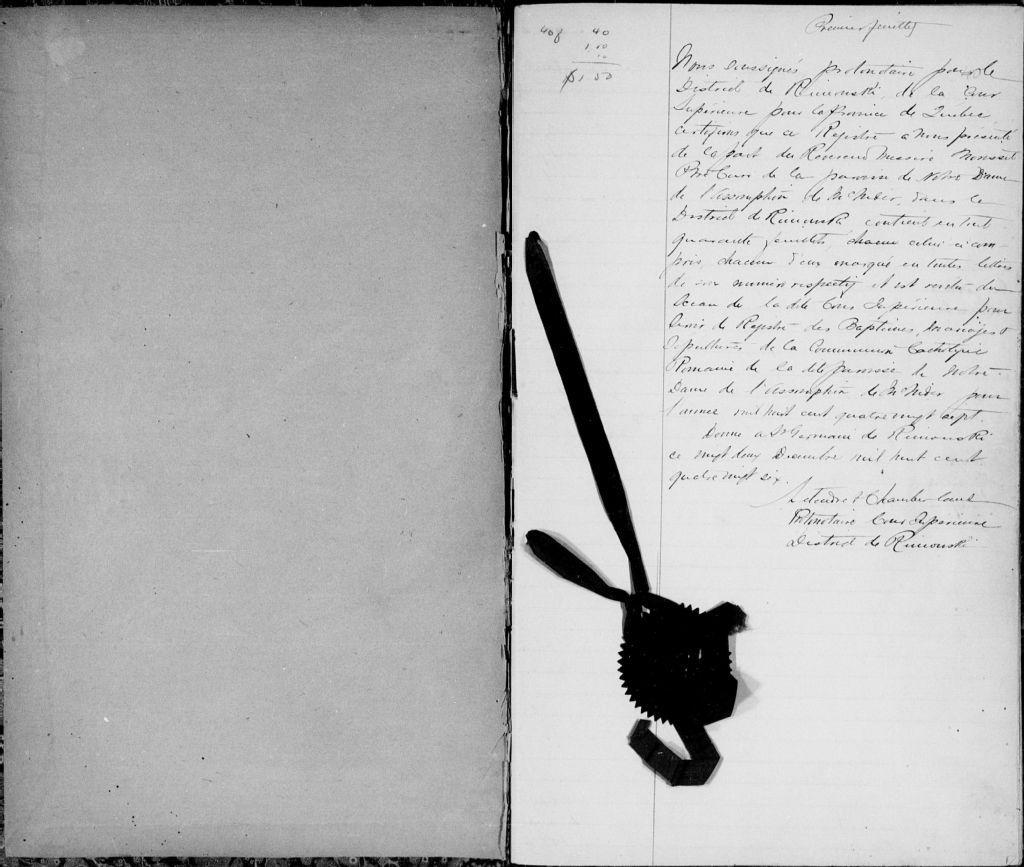 40 f 40
1,00
10
$1.50
Premier feuillet
Nous soussignés protonotaire pour le
District de Rimouski, de la Cour
Supérieure pour la Province de Quebec
certifions que ce Registre a Nous présenté
de la part du Révérend Messire
Ptre Curé de la paroisse de Notre Dame
de l'assomption de McNider, dans le
District de Rimouski contient en tout
quarante feuillets, celui ci com-
pris, chacun d'eux marqué en toutes lettres
de son numéro respectif et est revêtu du
Sceau de la dite Cour Supérieure pour
servir de Registre des Baptêmes, Mariages &
Sépultures de la Communion Catholique
Romaine de la dite paroisse de Notre-
Dame de l'assomption de McNider pour
l'année mil huit cent quatre vingt sept
Donné a St Germain de Rimouski
ce vingt deux Décembre mil huit cent
quatre vingt six.
Chamberland
Protonotaire Cour Supérieure
District de Rimouski